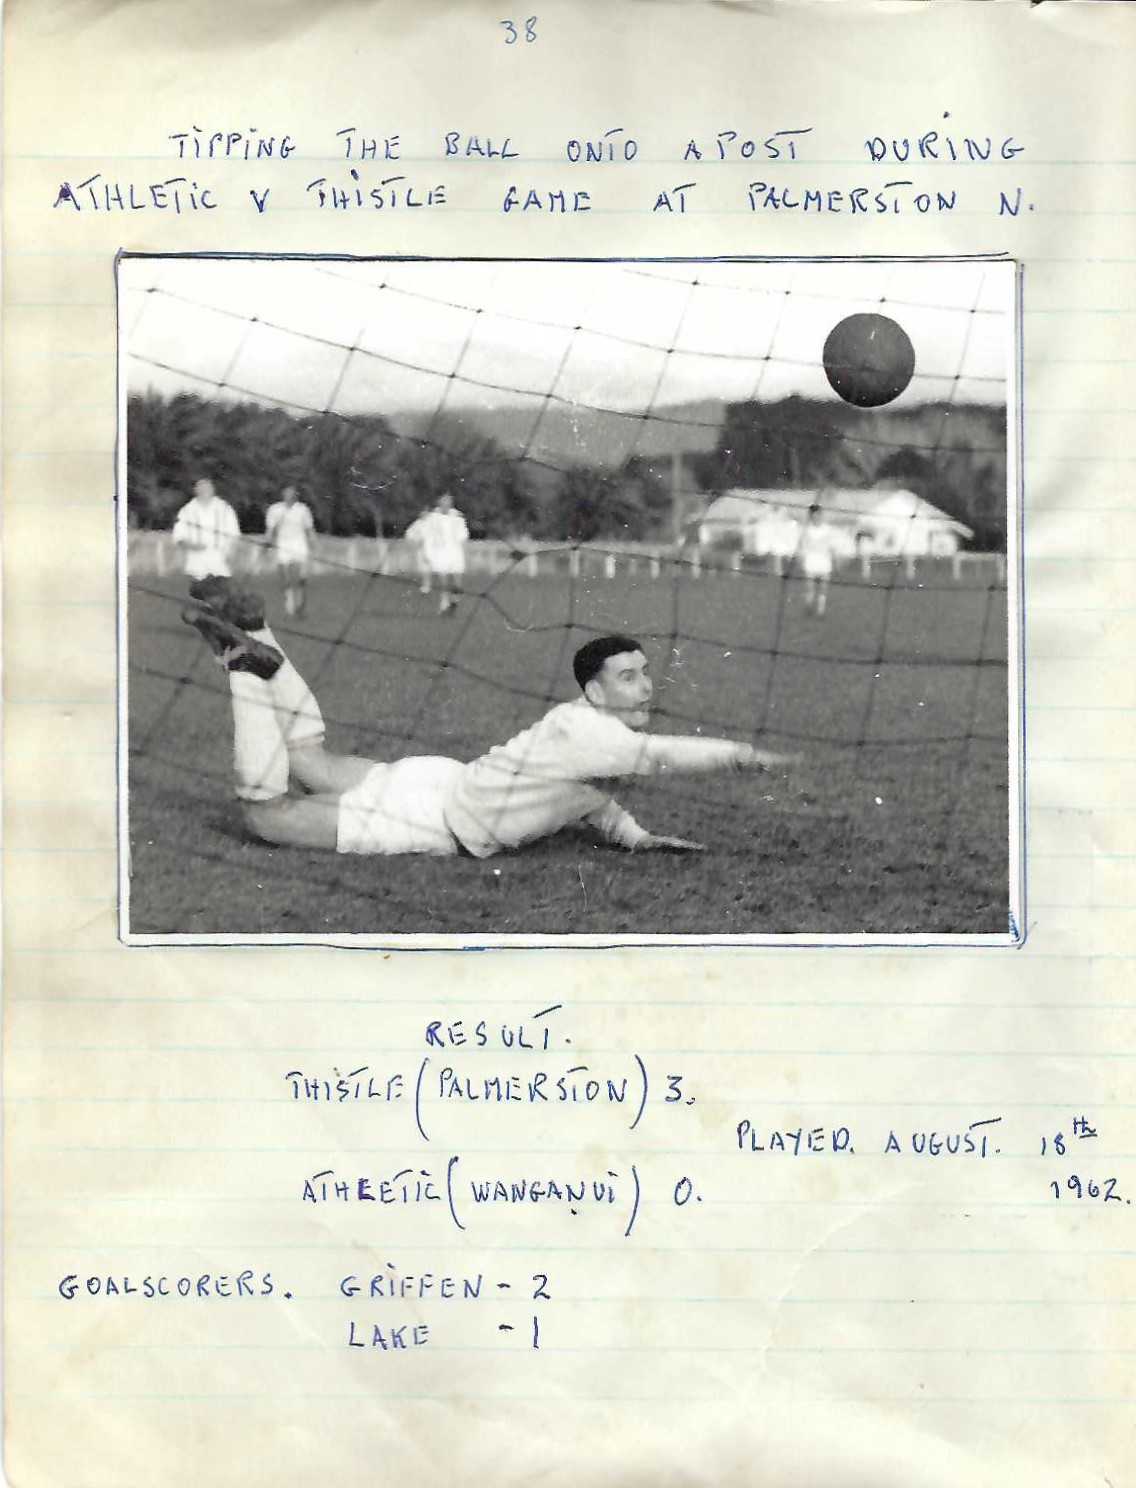 38
TIPPING THE BALL ONTO A POST DURING
ATHLETIC V THISTLE GAME AT PALMERSTON N.
RESULT.
THISTLE (PALMERSTON) 3.
PLAYED. AUGUST. 18th
ATHLETIC (WANGANUI) 0.
1962.
GOALSCORERS. GRIFFEN - 2
LAKE - 1